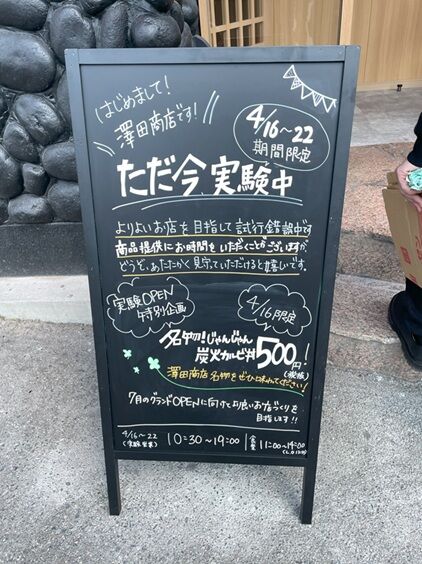 はじめまして!
澤田商店です!
4/16〜22
期間限定
ただ今、実験中
よりよいお店を目指して試行錯誤中です
商品提供にお時間をいただくことがございますが、
どうぞ、あたたかく見守っていただけると嬉しいです。
実験OPEN
特別企画
4/16限定
名物!じゃんじゃん
炭火カルビ丼500円!
(税抜)
澤田商店名物をぜひ味わってください!
7月のグランドOPENに向けてより良いお店づくりを
目指します!!
4/16〜22
(実験営業)
10:30〜19:00
11:00〜19:00